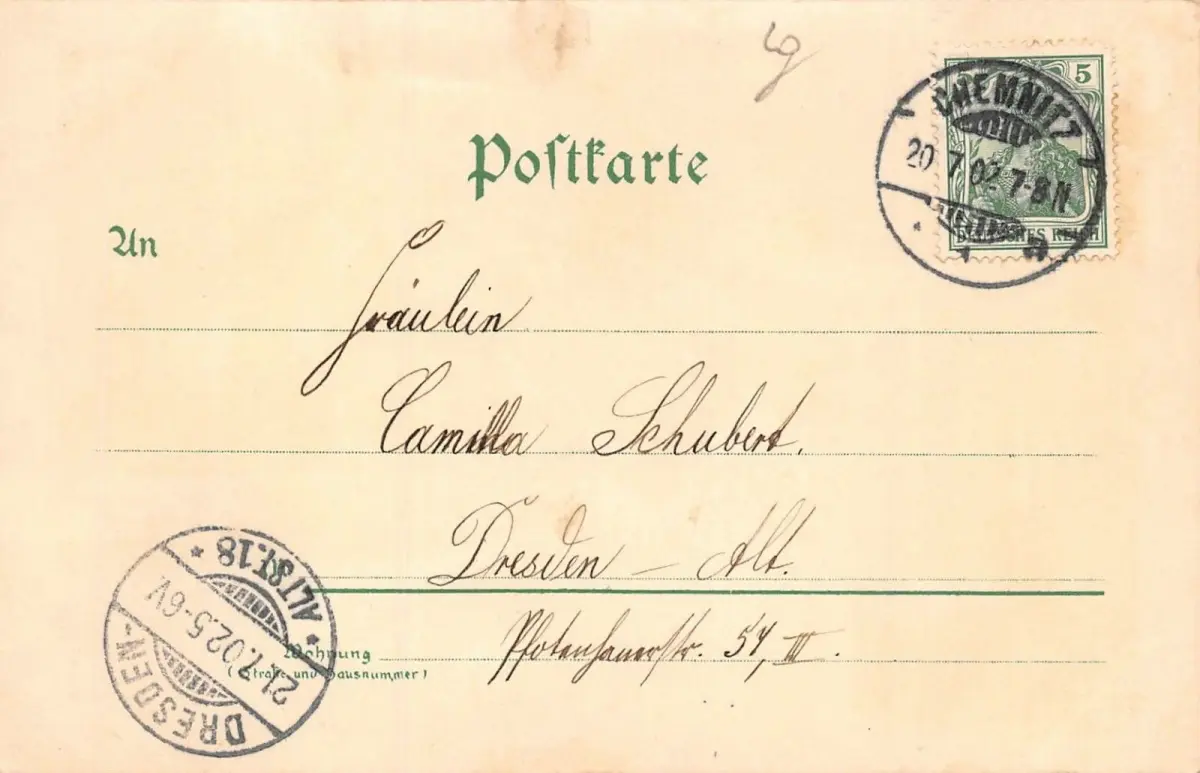 lg
5
CHEMNITZ
20 7 02 7-8 N
DEUTSCHES REICH
1 a
Postkarte
An
Fräulein
Camilla Schubert.
Dresden – Alt.
Wohnung
(Straße und Hausnummer)
Pfotenhauerstr. 54, III.
DRESDEN-
ALTST. 18
21.7.02.5-6V